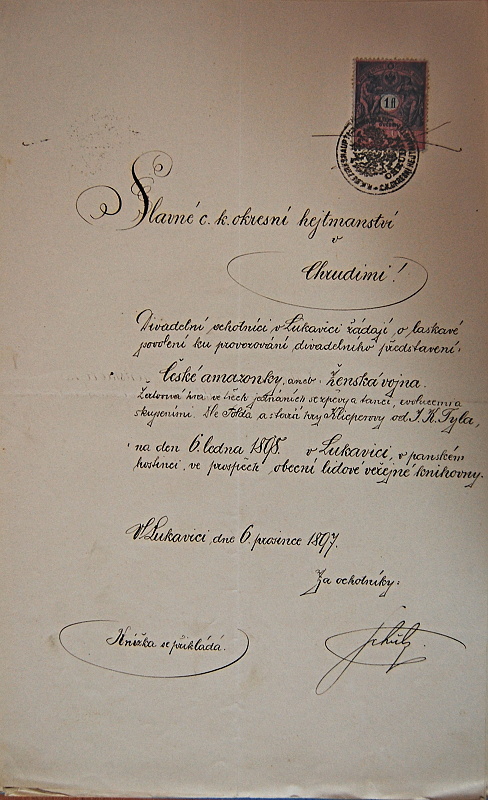 1 fl
Slavné c. k. okresní hejtmanství
v
Chrudimi!
Divadelní ochotníci v Lukavici žádají, o laskavé
povolení ku provozování divadelního představení:
České amazonky, aneb: ženská vojna.
Žertovná hra ve třech jednáních se zpěvy a tanci, evolucemi a
skupeními. Dle Tolda a starší hry Klicperovy od J. K. Tyla,
na den 6. ledna 1898. v Lukavici, v panském
hostinci, ve prospěch obecní lidové veřejné knihovny.
V Lukavici, dne 6. prosince 1897.
Za ochotníky:
Knížka se přikládá.